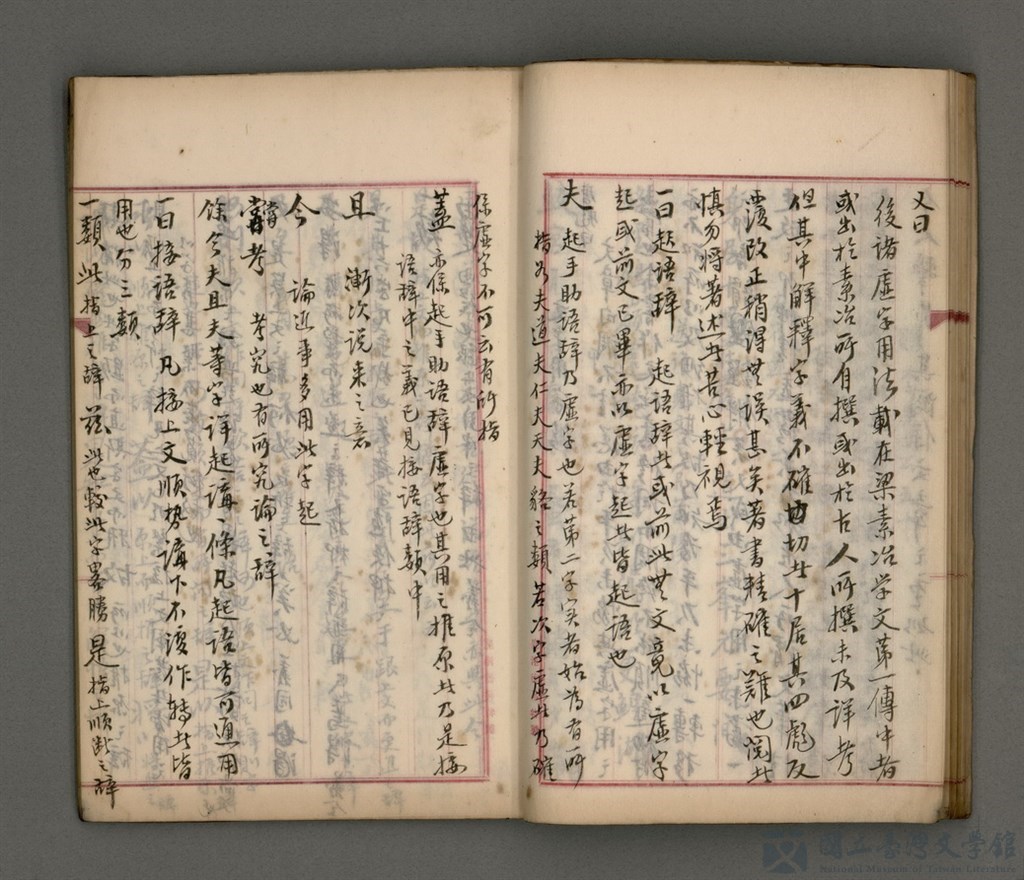 又曰
後諸虛字用法載在梁素冶学文第一傳中者
或出於素冶所自撰或出於古人所撰未及詳考
但其中解釋字義不確切者十居其四彪反
覆改正稍得無誤甚矣著書精確之難也閱者
慎勿將著述者苦心輕視焉
一曰起語辞 起語辞者或前此無文竟以虛字
起或前文已畢亦以虛字起者皆起語也
夫 起手助語辞乃虛字也若第二字实者始為有所
指如夫道夫仁夫天夫貉之類若次字虛者乃確
係虛字不可云有所指
蓋 亦係起手助語辞虛字也其用之推原者乃是接
語辞中之義已見接語辞類中
且 漸次說来之意
今 論近事多用此字起
嘗考 考究也有所究論之辞
餘今夫且夫等字詳起講一條凡起語皆可通用
一曰接語辞 凡接上文順勢講下不復作轉者皆
用也分三類
一類 此 指上之辞 茲 此也較此字畧勝 是 指上順断之辞
國立臺灣文學館
National Museum of Taiwan Literature